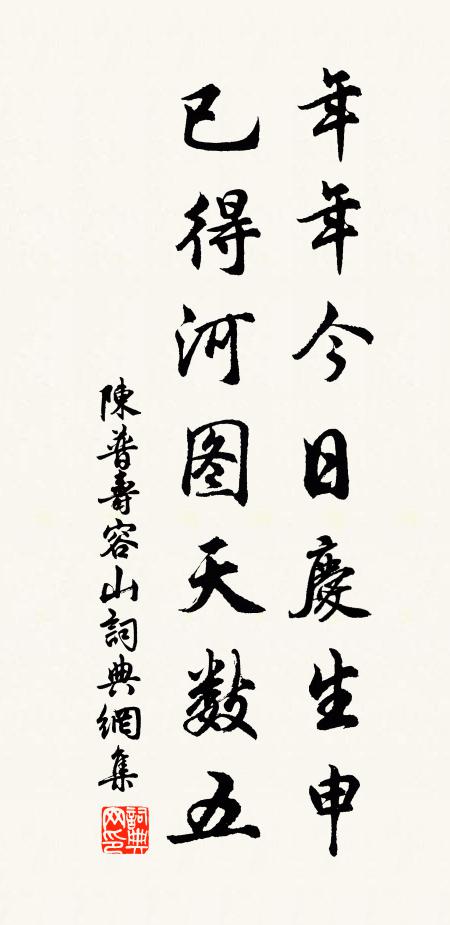 年年今日慶生申
已得河图天数五
陳普壽容山詞典網集
詞典网印